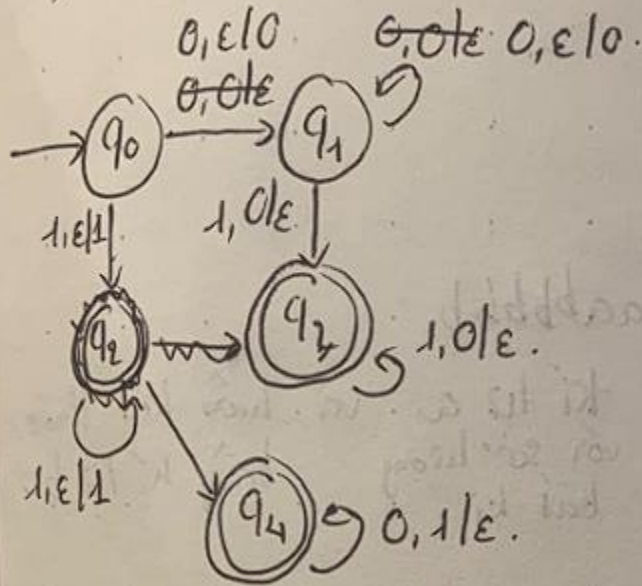 0,ε/0
0,0/ε 0,ε/0.
0,0/ε
q0
q1
1,ε/1
1,0/ε
q2
1,0/ε.
1,ε/1
q4
0,1/ε.